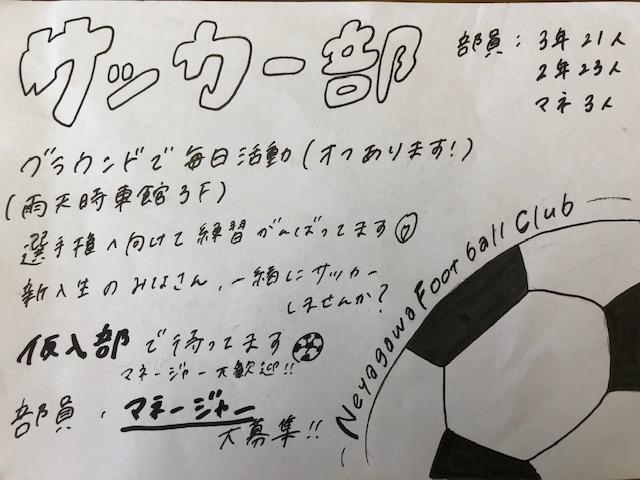 サッカー部
部員：3年21人
2年23人
マネ3人
グラウンドで毎日活動(オフあります!)
(雨天時東館3F)
選手権へ向けて練習がんばってます
新入生のみなさん、一緒にサッカー
しませんか?
仮入部で待ってます
マネージャー大歓迎!!
部員、マネージャー
大募集!!
Neyagawa Football Club